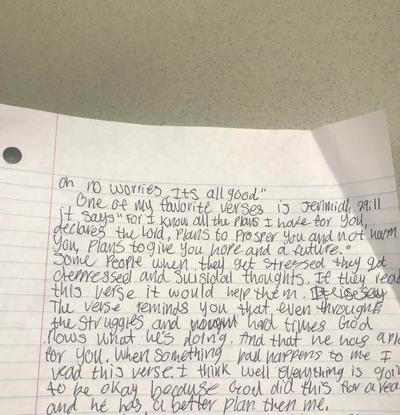 oh no worries, Its all good"
One of my favorite verses is Jerimiah 29:11
it says "For I know all the plans I have for you,
declares the Lord, plans to prosper you and not harm
you, plans to give you hope and a future."
Some people when they get stressed they get
depressed and suisidal thoughts. If they read
this verse it would help them.
The verse reminds you that even through
the struggles and hard times God
nows what he's doing. And that he has a
for you. When something bad happens to me I
read this verse I think well everything is goi
to be okay because God did this for a rea
and he has a better plan then me.